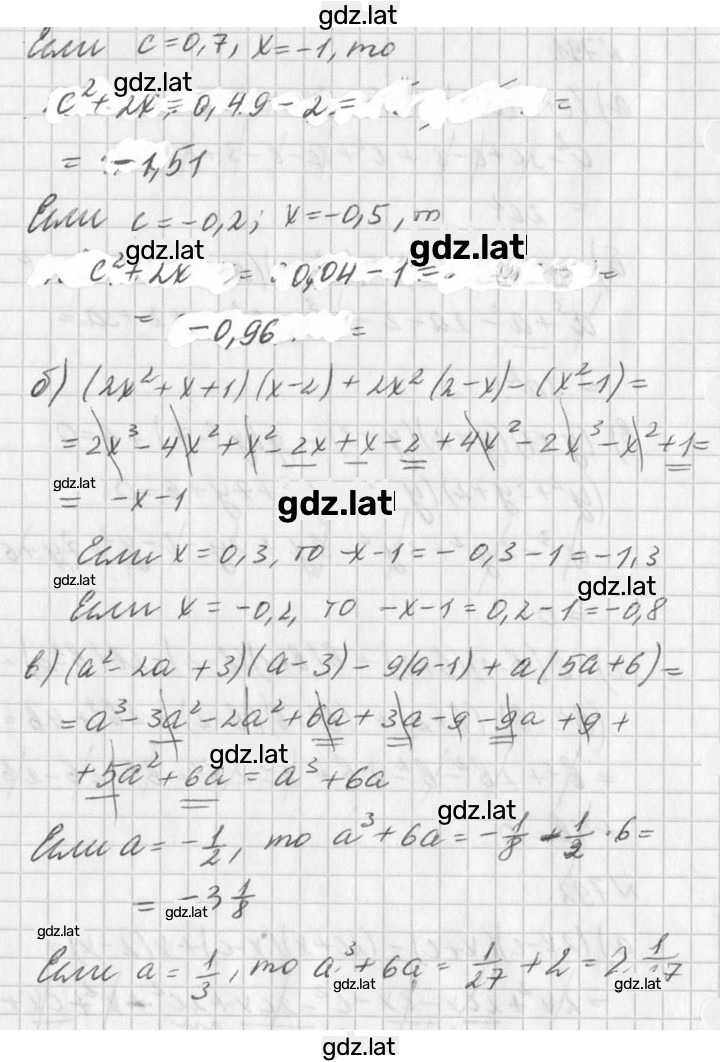 gdz.lat
Если c=0,7, x=-1, то
gdz.lat
c²+2x=0,49-2= =
= -1,51
Если c=-0,2; x=-0,5, т
gdz.lat gdz.lat
c²+2x = 0,04-1= =
= -0,96 =
б) (2x²+x+1)(x-2)+2x²(2-x)-(x²-1)=
=2x³-4x²+x²-2x+x-2+4x²-2x³-x²+1=
gdz.lat
= -x-1 gdz.lat
Если x=0,3, то -x-1=-0,3-1=-1,3
gdz.lat gdz.lat
Если x=-0,2, то -x-1=0,2-1=-0,8
в) (a²-2a+3)(a-3)-9(a-1)+a(5a+6)=
=a³-3a²-2a²+6a+3a-9-9a+9+
gdz.lat
+5a²+6a=a³+6a
gdz.lat
Если a=-1/2, то a³+6a=-1/8-1/2·6=
= -3 1/8
gdz.lat
gdz.lat
Если a=1/3, то a³+6a=1/27+2=2 1/27
gdz.lat gdz.lat
gdz.lat